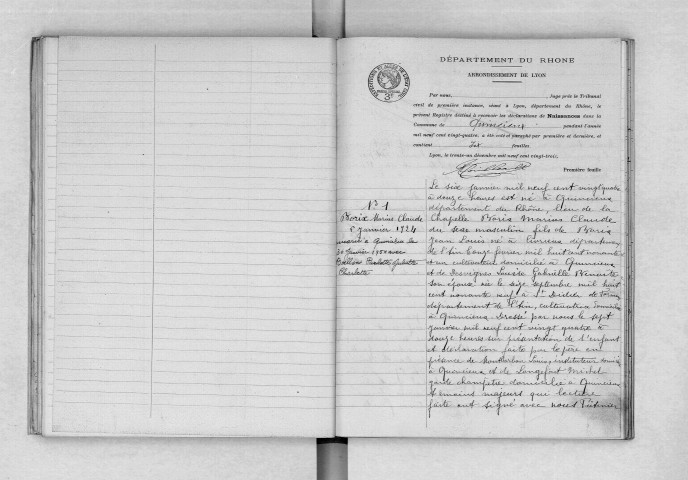 DÉPARTEMENT DU RHONE
ARRONDISSEMENT DE LYON
Par nous, Juge près le Tribunal
civil de première instance, séant à Lyon, département du Rhône, le
présent Registre destiné à recevoir les déclarations de Naissances dans la
Commune de Quincieux pendant l'année
mil neuf cent vingt-quatre, a été coté et paraphé par première et dernière, et
contient feuilles
Lyon, le trente-un décembre mil neuf cent vingt-trois,
Première feuille
N° 1
Marius Claude
6 janvier 1924
marié à Quincieux le
30 1950 avec
Juliette
Charlotte
Le six janvier mil neuf cent vingt quatre
à douze heures est né à Quincieux
département du Rhône, lieu de la
Chapelle Marius Claude
du sexe masculin fils de
Jean Louis né à Civrieux département
de l'Ain février mil huit cent nonante
cultivateur domicilié à Quincieux
et de Desvignes Louise Gabrielle Benoite
son épouse née le seize septembre mil huit
cent nonante neuf à St Didier de
département de l'Ain, cultivatrice domiciliée
à Quincieux. Dressé par nous le sept
janvier mil neuf cent vingt quatre à
heures sur présentation de l'enfant
et déclaration faite par le père en
présence de Louis, instituteur
à Quincieux et de Longefont Michel
garde champêtre domicilié à Quincieux
témoins majeurs qui lecture
faite ont signé avec nous